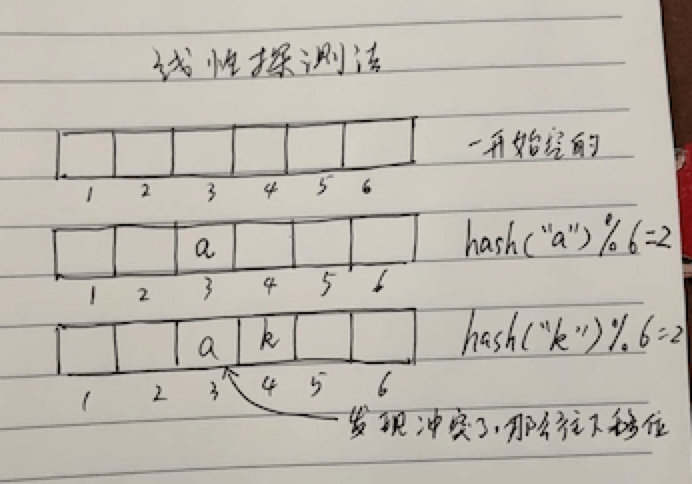 线性探测法
一开始空的
1 2 3 4 5 6
a
hash("a")%6=2
1 2 3 4 5 6
a k
hash("k")%6=2
1 2 3 4 5 6
发现冲突了,那会往下移位